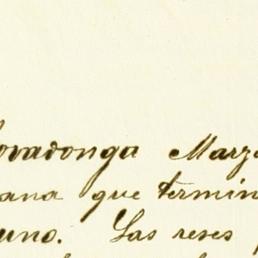 Covadonga Marz
ana que termin
uno. Las reses